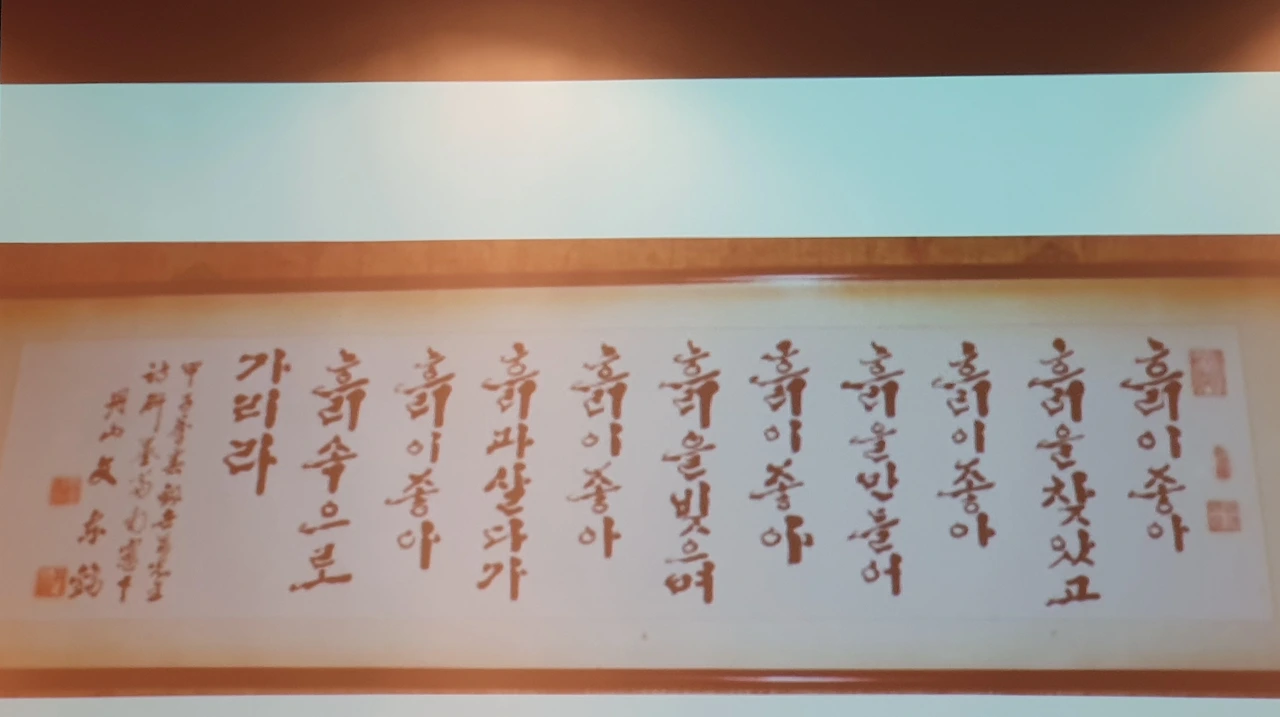 흙이좋아
흙을찾았고
흙이좋아
흙을만들어
흙이좋아
흙을빚으며
흙이좋아
흙과살다가
흙이좋아
흙속으로
가리라